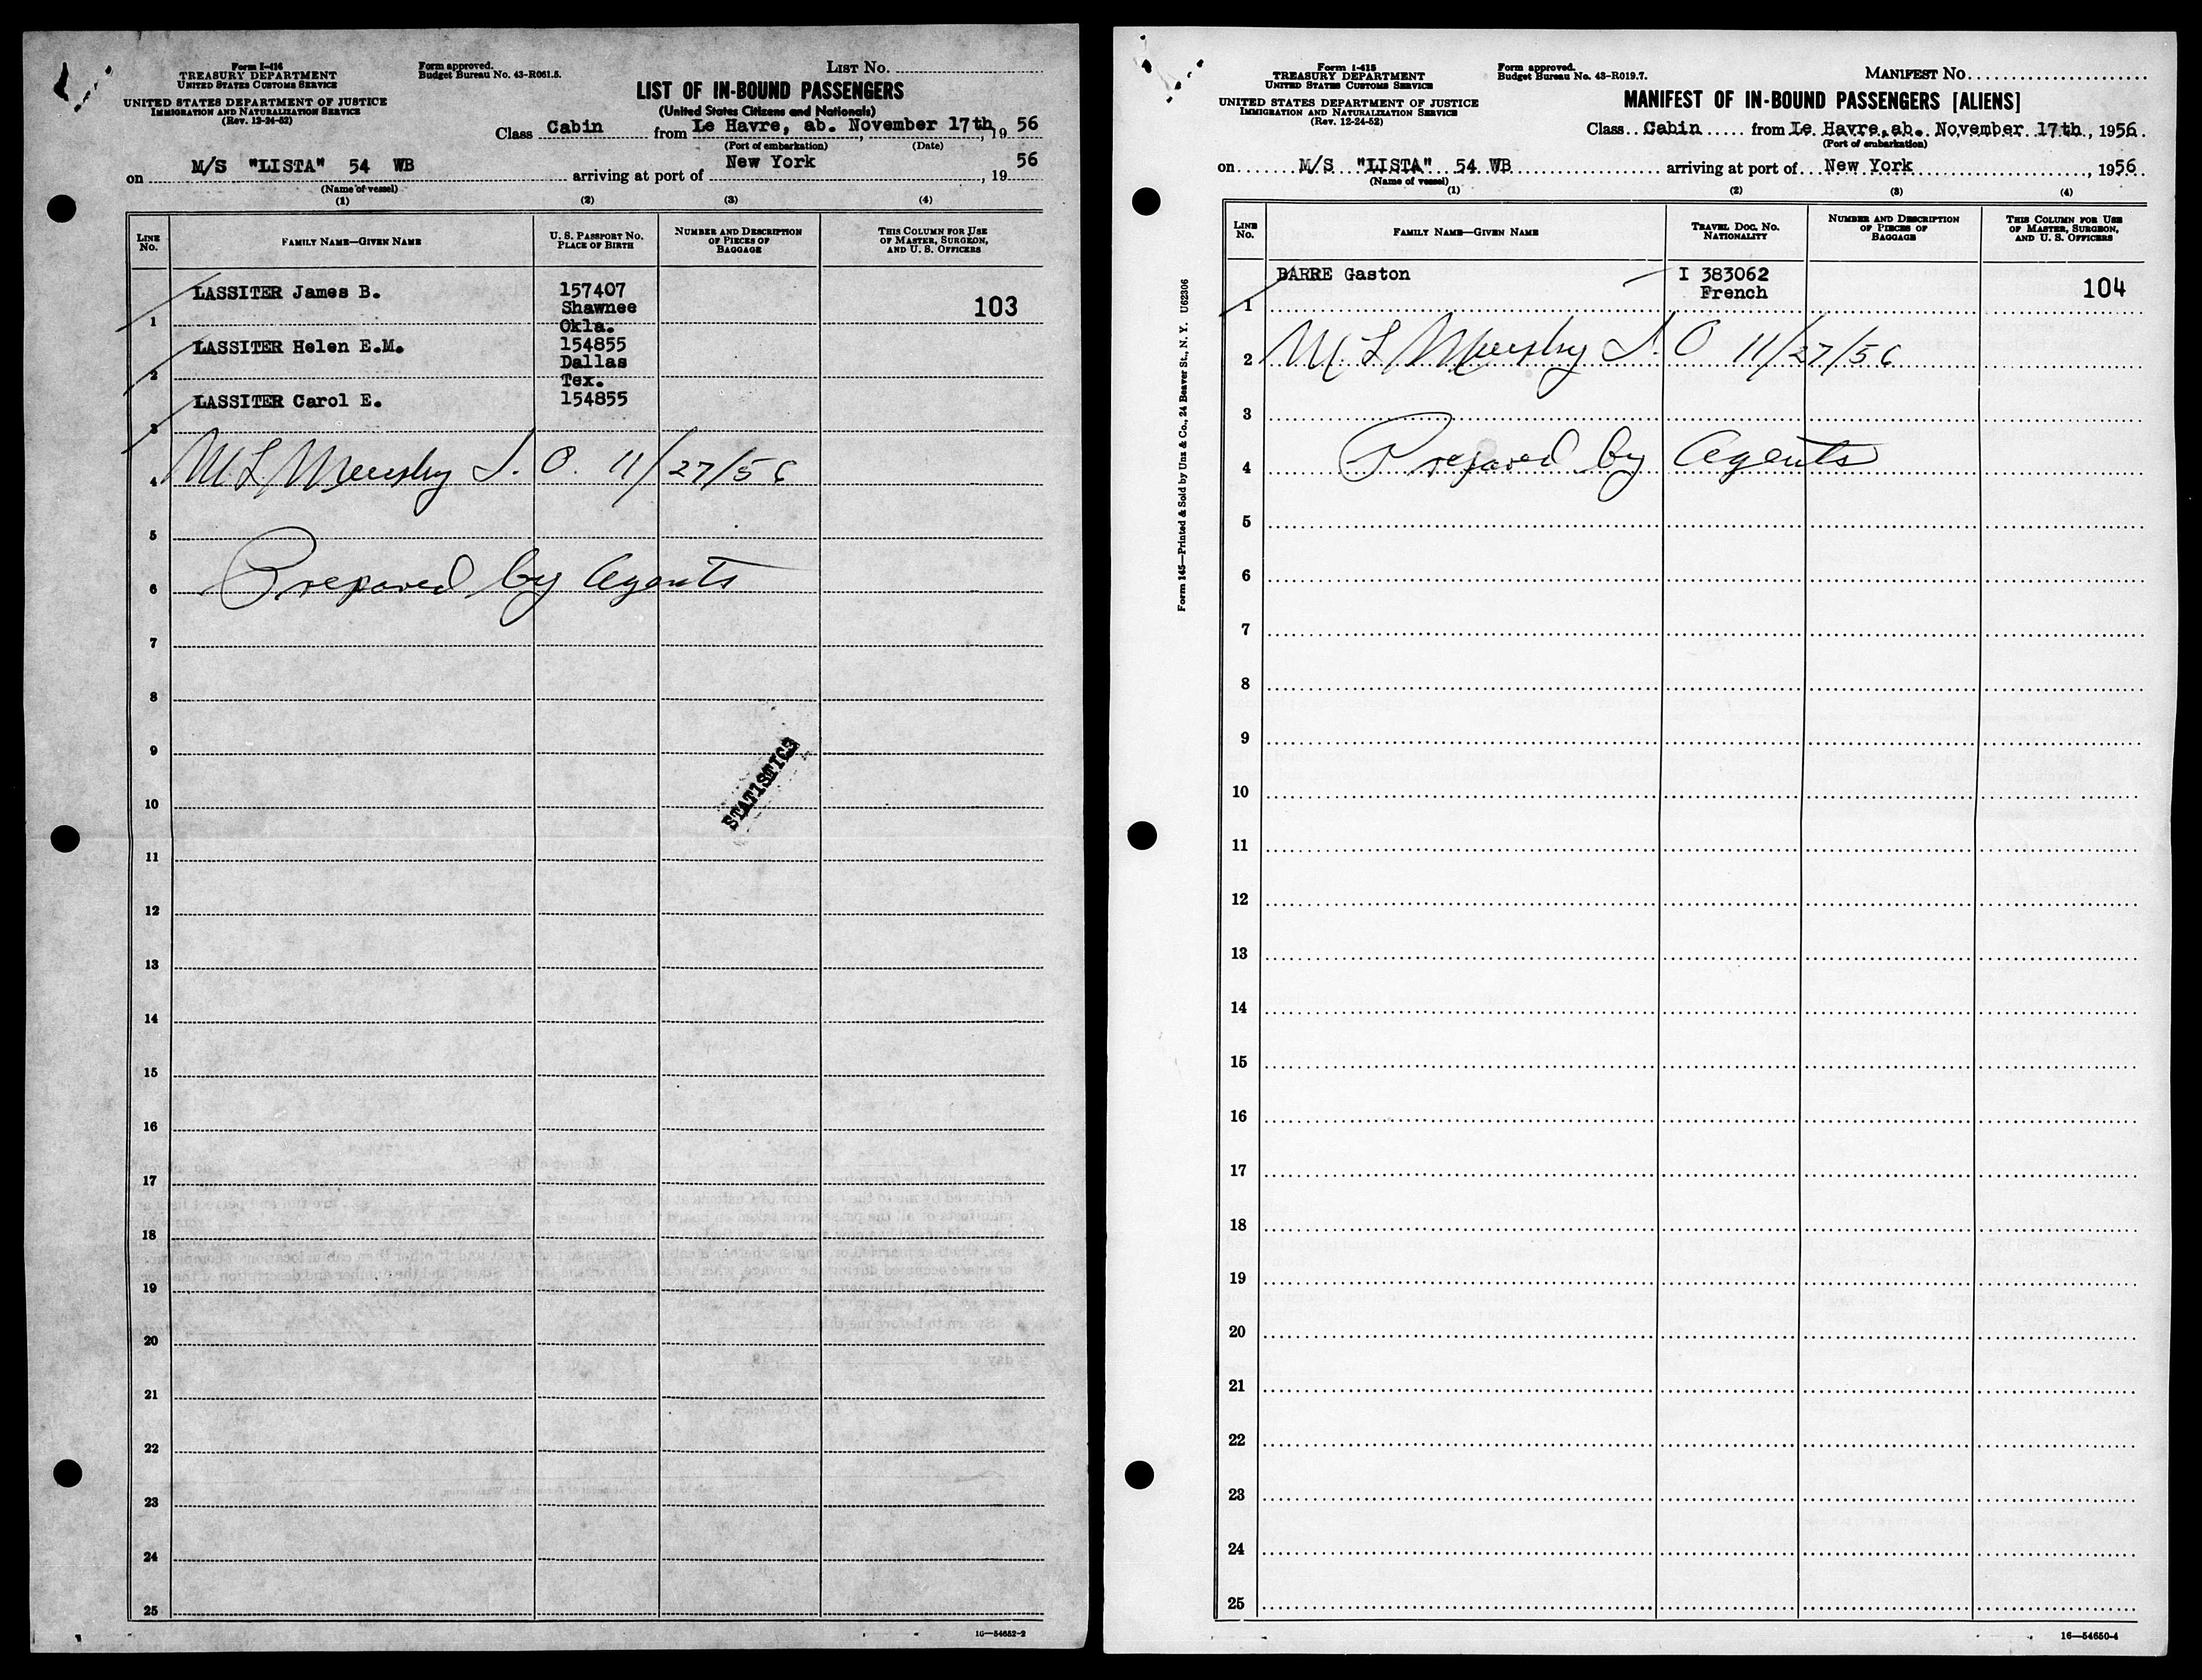 Form I-416
TREASURY DEPARTMENT
UNITED STATES CUSTOMS SERVICE
UNITED STATES DEPARTMENT OF JUSTICE
IMMIGRATION AND NATURALIZATION SERVICE
(Rev. 12-24-52)
Form approved.
Budget Bureau No. 43-R061.5.
LIST NO.
LIST OF IN-BOUND PASSENGERS
(United States Citizens and Nationals)
Class Cabin from Le Havre, ab. November 17th, 19 56
(Port of embarkation) (Date)
on M/S "LISTA" 54 WB arriving at port of New York, 19 56
(Name of vessel)
(1) (2) (3) (4)
LINE NO. FAMILY NAME—GIVEN NAME U. S. PASSPORT NO. PLACE OF BIRTH NUMBER AND DESCRIPTION OF PIECES OF BAGGAGE THIS COLUMN FOR USE OF MASTER, SURGEON, AND U. S. OFFICERS
1 LASSITER James B. 157407 Shawnee Okla. 103
2 LASSITER Helen E.M. 154855 Dallas Tex.
3 LASSITER Carol E. 154855
4 M. L. Murphy I. O. 11/27/56
5
6 Prepared by Agents
7
8
9
STATISTICS
10
11
12
13
14
15
16
17
18
19
20
21
22
23
24
25
16—54652-2
Form I-415
TREASURY DEPARTMENT
UNITED STATES CUSTOMS SERVICE
UNITED STATES DEPARTMENT OF JUSTICE
IMMIGRATION AND NATURALIZATION SERVICE
(Rev. 12-24-52)
Form approved.
Budget Bureau No. 43-R019.7.
MANIFEST NO.
MANIFEST OF IN-BOUND PASSENGERS [ALIENS]
Class Cabin from Le Havre, ab. November 17th, 1956.
(Port of embarkation)
on M/S "LISTA" 54 WB arriving at port of New York, 1956
(Name of vessel)
(1) (2) (3) (4)
LINE NO. FAMILY NAME—GIVEN NAME TRAVEL DOC. NO. NATIONALITY NUMBER AND DESCRIPTION OF PIECES OF BAGGAGE THIS COLUMN FOR USE OF MASTER, SURGEON, AND U. S. OFFICERS
1 BARRE Gaston I 383062 French 104
2 M. L. Murphy I. O. 11/27/56
3
4 Prepared by Agents
5
6
7
8
9
10
11
12
13
14
15
16
17
18
19
20
21
22
23
24
25
Form 145—Printed & Sold by Unz & Co., 24 Beaver St., N. Y. U62306
16—54650-4